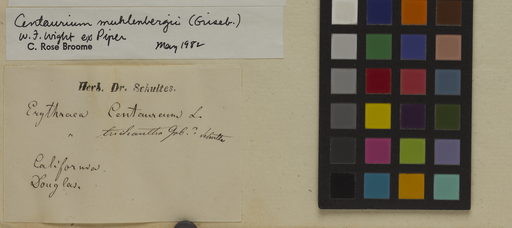 Centaurium muhlenbergii (Griseb.)
W. F. Wight ex Piper
C. Rose Broome May 1982
Herb. Dr. Schultes.
Erythraea Centaureum L.
" trichantha Grb.?
California.
Douglas.